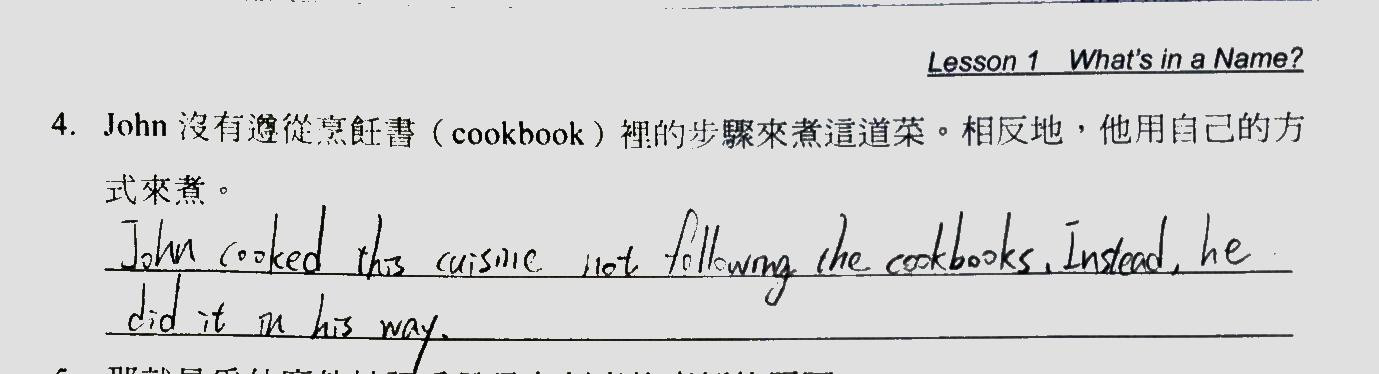 Lesson 1 What's in a Name?
4. John 沒有遵從烹飪書（cookbook）裡的步驟來煮這道菜。相反地，他用自己的方
式來煮。
John cooked this cuisine not following the cookbooks. Instead, he
did it in his way.